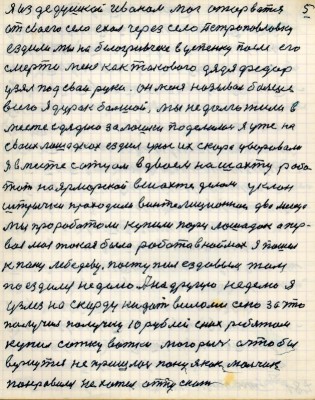 5
я из дедушкой иваном мог оторватся
от своего село ехал через село Петропавловку
ездили мы на белогривчеке в успенку после его
смерти меня как такового дядя федор
узял под свои руки. он меня називал бальше
всего я дурак балшой, мы недолго жили в
месте с дядию за лошаки поделили я уже на
своих лошадках ездил у нас их скоро уворовали
я в месте с отцом вдвоем на шахту рабо
тат на ярмаркой вшахте делом уклон
штрички проходили винтеляционной два месяца
мы проработали купили пару лошадок а пер
вая моя такая была работа внаймах я пошел
к пану лебедеву, поступил ездовым там
поездил неделю а надругую неделю я
узлез на скирду кидат вилами сено за это
получил получку 10 рублей сних ребятам
купил сотку водки могорич а чтобы
вернутся не пришлось пану я как мальчик
понравился не хотел отпускат